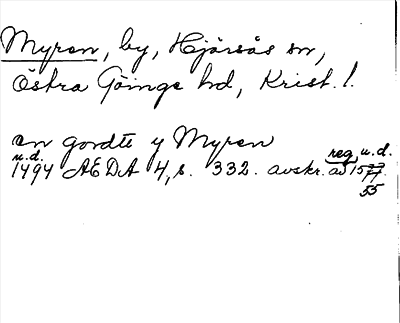 Myren, by, Hjärsås sn,
Östra Göinge hd, Krist. l.
en gordtt y Myren
u.d. reg. u.d.
1494 AEDA 4, s. 332. avskr. av 1577.
55